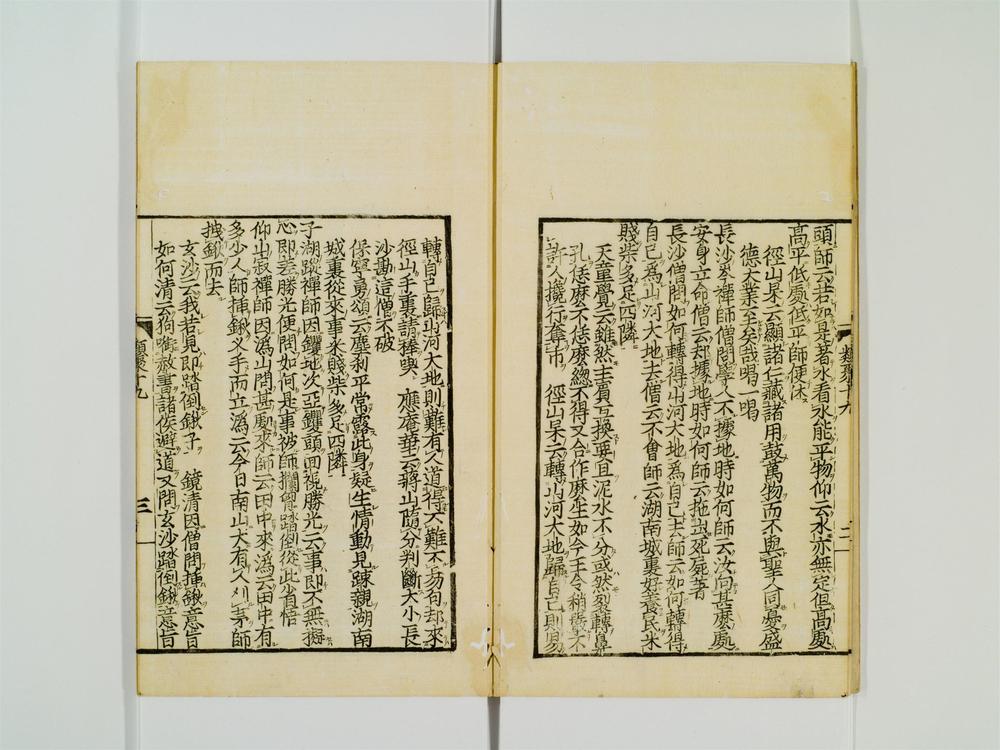 頭師云若如是著水看水能平物仰云水亦無定但高處
高平低處低平師便休
徑山杲云顯諸仁藏諸用鼓萬物而不與聖人同憂盛
德大業至矣哉喝一喝
長沙岑禪師僧問學人不據地時如何師云汝向甚麼處
安身立命僧云却據地時如何師云拖出死屍著
長沙僧問如何轉得山河大地爲自己去師云如何轉得
自己爲山河大地去僧云不會師云湖南城裏好養民米
賤柴多足四隣
天童覺云雖然主賓互換要且泥水不分或然裂轉鼻
孔恁麼不恁麼總不得又合作麼生如今王令稍嚴不
許人攙行奪市 徑山杲云轉山河大地歸自己則易
轉自己歸山河大地則難有人道得不難不易句却來
徑山手裏請棒喫 應庵華云蔣山隨分判斷大小長
沙勘這僧不破
保寧勇頌云塵刹平常露此身疑生情動見疎親湖南
城裏從來事米賤柴多足四隣
子湖蹤禪師因钁地次亞钁頭回視勝光云事即不無擬
心即差勝光便問如何是事被師攔胷踏倒從此省悟
仰山寂禪師因潙山問甚處來師云田中來潙云田中有
多少人師插鍬叉手而立潙云今日南山大有人刈茅師
拽鍬而去
玄沙云我若見即踏倒鍬子 鏡清因僧問插鍬意旨
如何清云狗㘅赦書諸侯避道又問玄沙踏倒鍬意旨
三